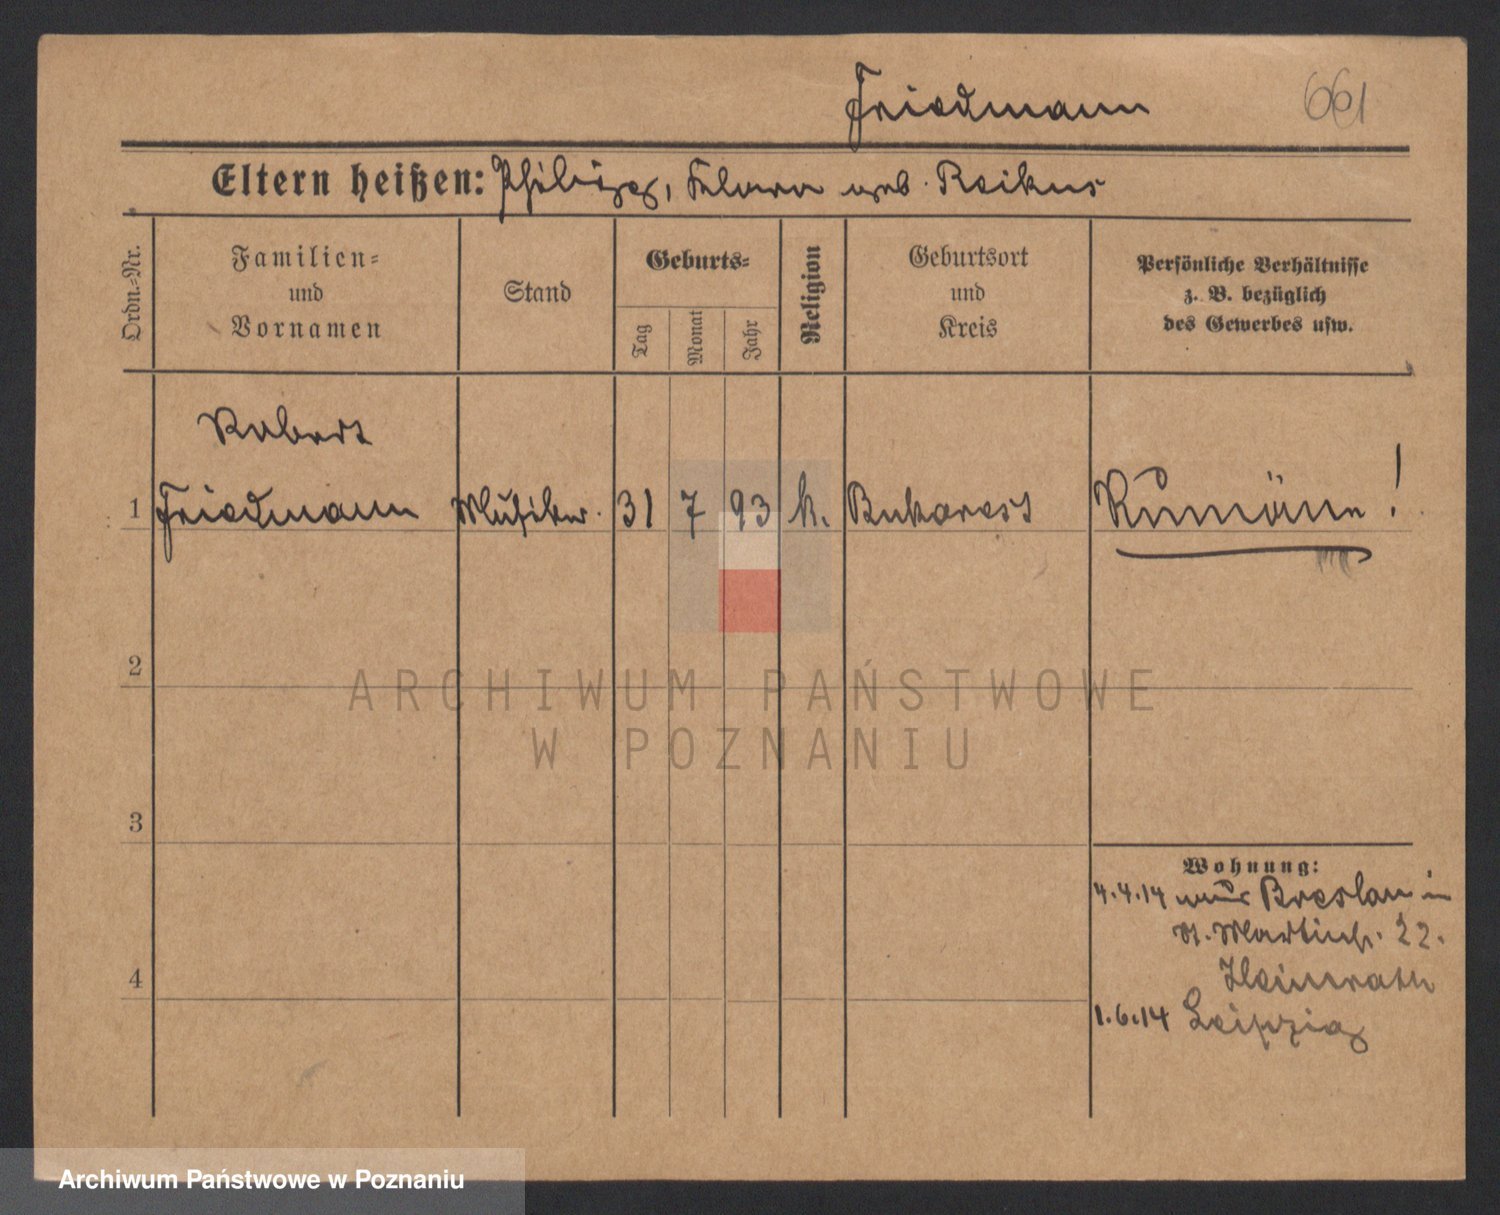 Friedmann 661
Eltern heißen: Philipp, Klara geb. Reikus
Ordn.-Nr.
Familien-
und
Vornamen
Stand
Geburts-
Tag
Monat
Jahr
Religion
Geburtsort
und
Kreis
Persönliche Verhältnisse
z. B. bezüglich
des Gewerbes usw.
Robert
1 Friedmann Musiker. 31 7 93 k. Bukarest Rumäne!
2
ARCHIWUM PAŃSTWOWE
W POZNANIU
3
Wohnung:
4.4.14 aus Breslau in
St. Martinstr. 22.
4
1.6.14 Leipzig
Archiwum Państwowe w Poznaniu